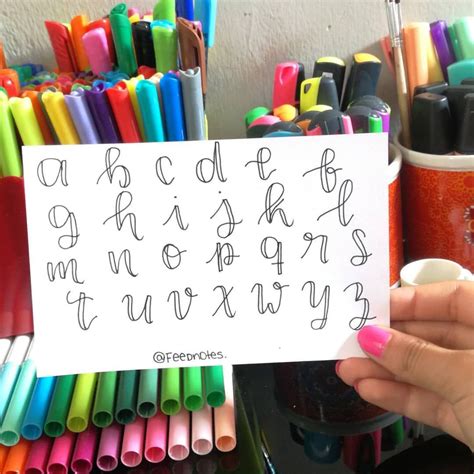 a b c d e f
g h i j k l
m n o p q r s
t u v x w y z
@FEEDNOTES.